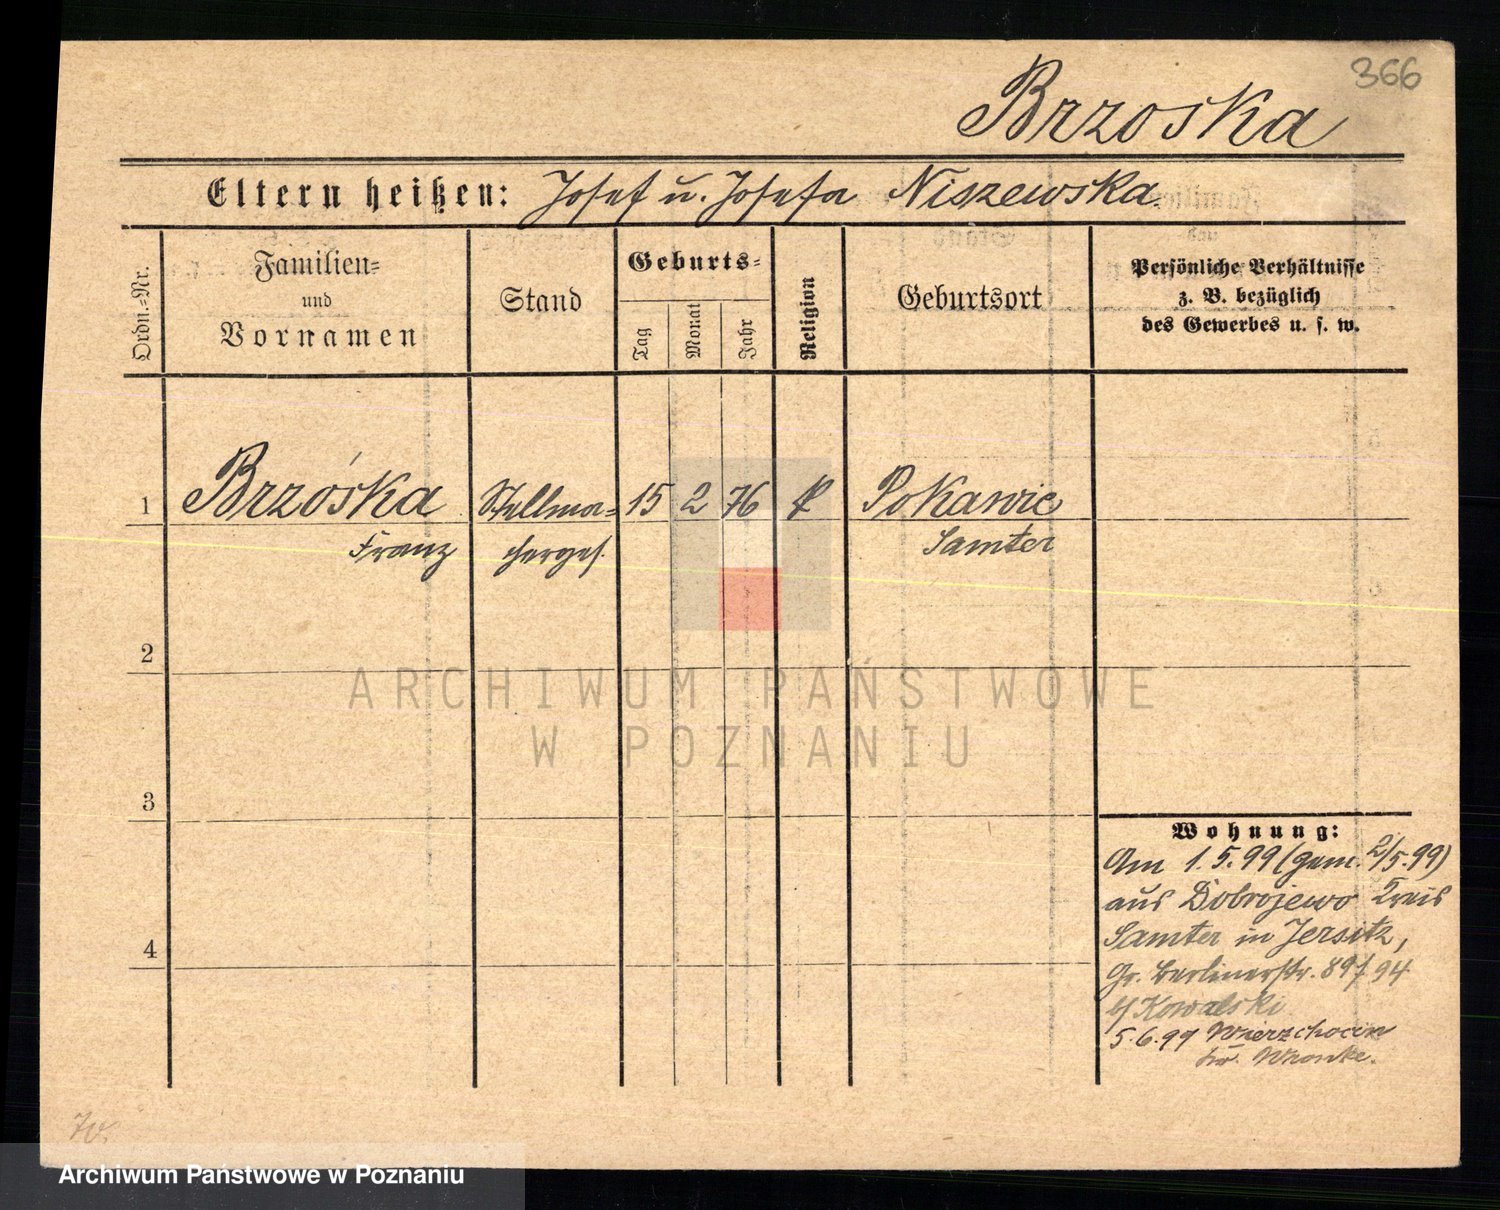 366
Brzoska
Eltern heißen: Josef u. Josefa Niszewska.
Ordn.-Nr.
Familien-
und
Vornamen
Stand
Geburts-
Tag
Monat
Jahr
Religion
Geburtsort
Persönliche Verhältnisse
z. B. bezüglich
des Gewerbes u. s. w.
1 Brzóska Stellma- 15 2 76 k Pokawie
Franz cherges. Samter
2
3
4
Wohnung:
Am 1.5.99 (gem. 2/5.99)
aus Dobrojewo Kreis
Samter in Jersitz,
Gr. Berlinerstr. 89/94
b/ Kowalski
5.6.99 Wierzchocin
kr. Wronke.
ARCHIWUM PAŃSTWOWE
W POZNANIU
Archiwum Państwowe w Poznaniu